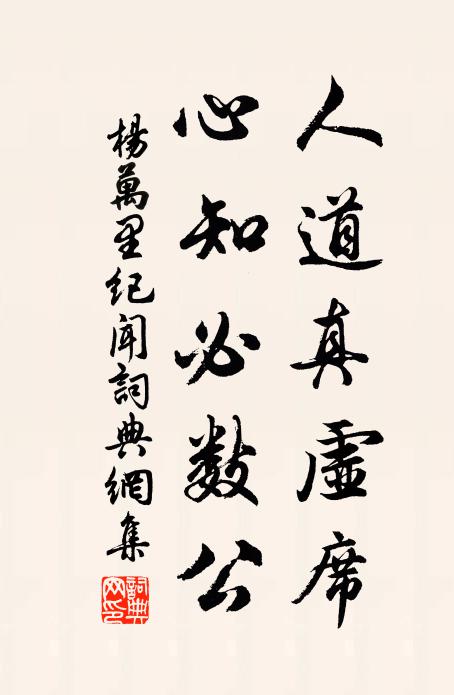 人道真虛席
心知必數公
楊萬里紀聞詞典網集
詞典网印